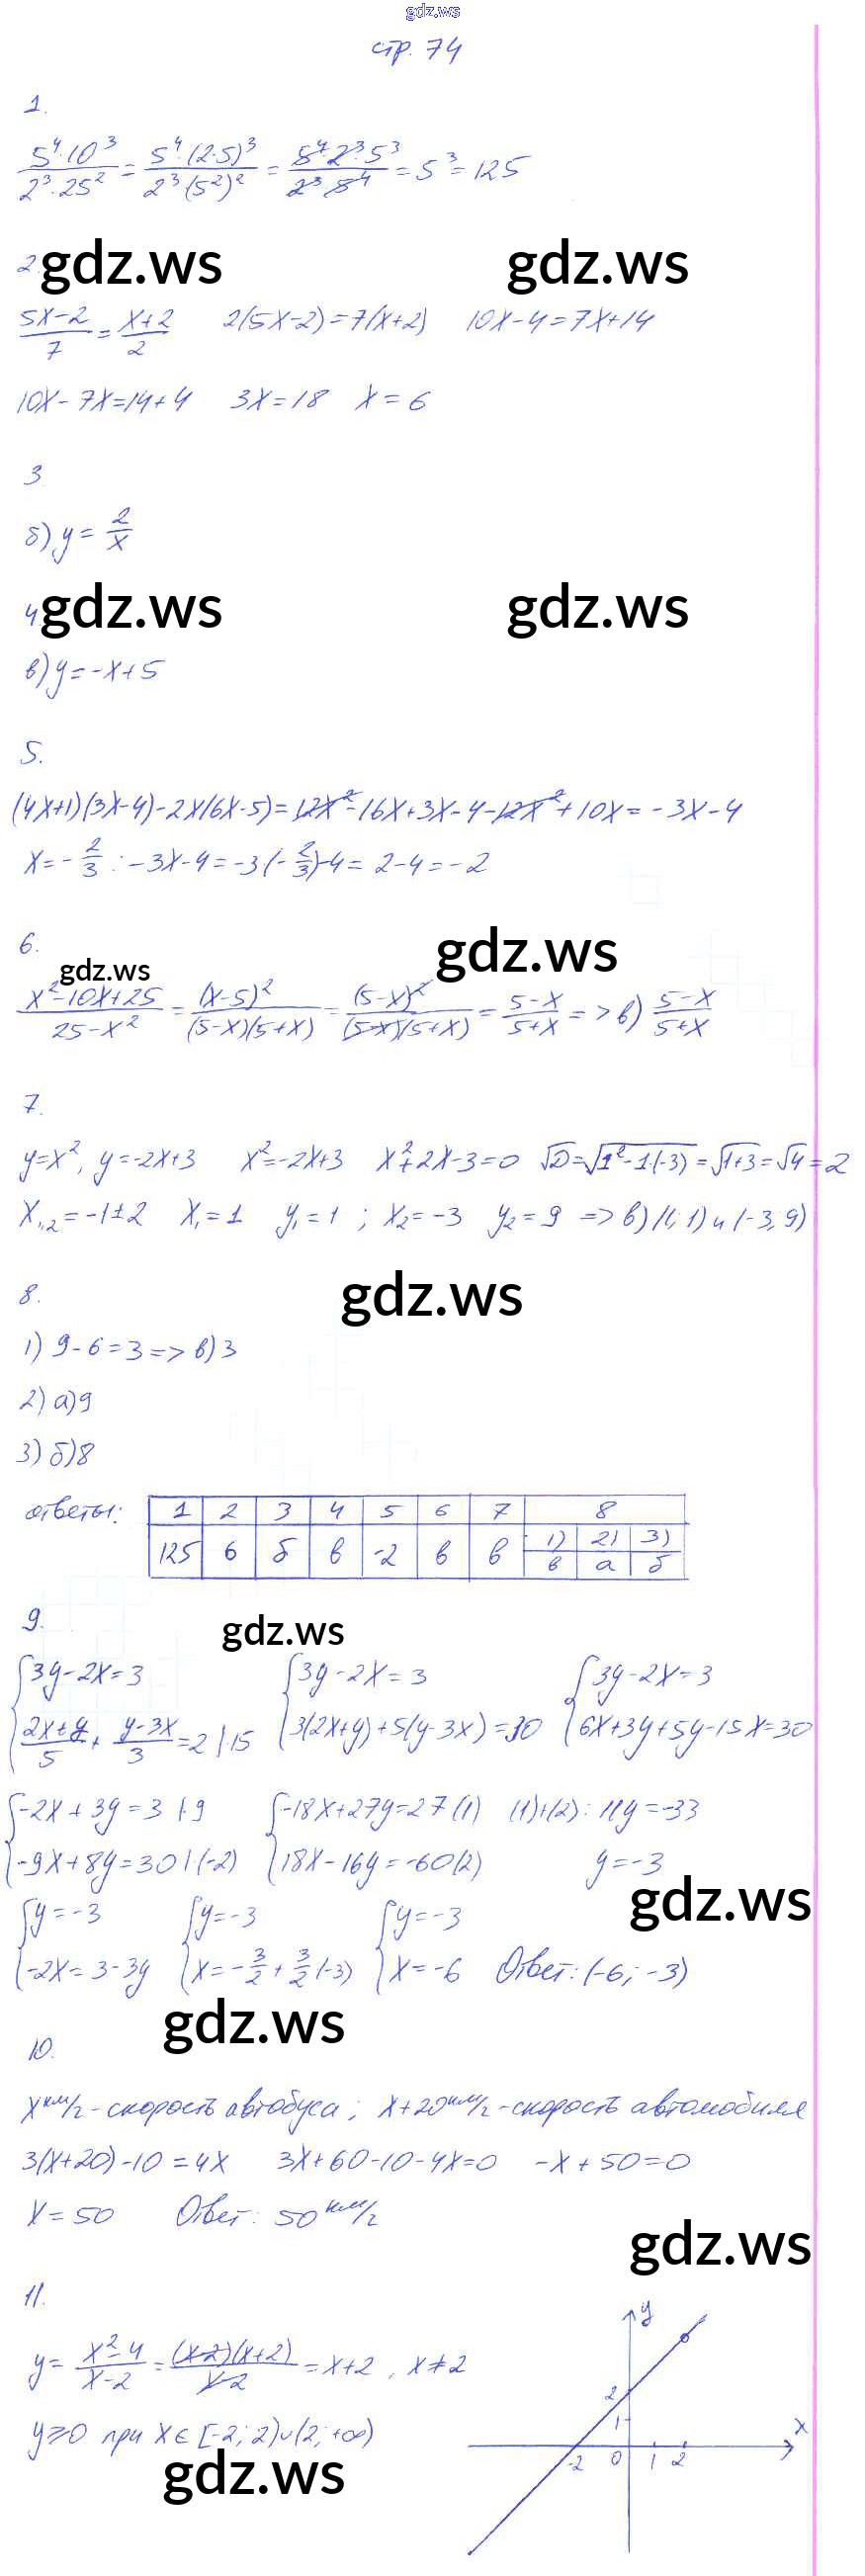 gdz.ws
стр. 74
1.
5⁴·10³/2³·25² = 5⁴·(2·5)³/2³·(5²)² = 5⁴·2³·5³/2³·5⁴ = 5³ = 125
2. gdz.ws gdz.ws
5x-2/7 = x+2/2 2(5x-2)=7(x+2) 10x-4=7x+14
10x-7x=14+4 3x=18 x=6
3
б) y = 2/x
4. gdz.ws gdz.ws
в) y=-x+5
5.
(4x+1)(3x-4)-2x(6x-5)=12x²-16x+3x-4-12x²+10x=-3x-4
x=-2/3 : -3x-4=-3(-2/3)-4=2-4=-2
6. gdz.ws gdz.ws
x²-10x+25/25-x² = (x-5)²/(5-x)(5+x) = (5-x)²/(5-x)(5+x) = 5-x/5+x => в) 5-x/5+x
7.
y=x², y=-2x+3 x²=-2x+3 x²+2x-3=0 √D=√1²-1·(-3)=√1+3=√4=2
x₁,₂=-1±2 x₁=1 y₁=1 ; x₂=-3 y₂=9 => в) (1; 1) и (-3; 9)
8. gdz.ws
1) 9-6=3 => в) 3
2) а) 9
3) б) 8
ответы: 1 2 3 4 5 6 7 8
125 6 б в -2 в в 1) 2) 3)
в а б
9. gdz.ws
{3y-2x=3 {3y-2x=3 {3y-2x=3
2x+y/5 + y-3x/3 =2 |·15 3(2x+y)+5(y-3x)=30 6x+3y+5y-15x=30
{-2x+3y=3 |·9 {-18x+27y=27 (1) (1)+(2): 11y=-33
-9x+8y=30 |·(-2) 18x-16y=-60 (2) y=-3
gdz.ws
{y=-3 {y=-3 {y=-3
-2x=3-3y x=-3/2+3/2(-3) x=-6 Ответ: (-6; -3)
gdz.ws
10.
x км/г - скорость автобуса; x+20 км/г - скорость автомобиля
3(x+20)-10=4x 3x+60-10-4x=0 -x+50=0
x=50 Ответ: 50 км/г
gdz.ws
11.
y= x²-4/x-2 = (x-2)(x+2)/x-2 = x+2, x≠2
y≥0 при x∈[-2; 2)∪(2; +∞)
gdz.ws
y
2
1
x
-2 0 1 2